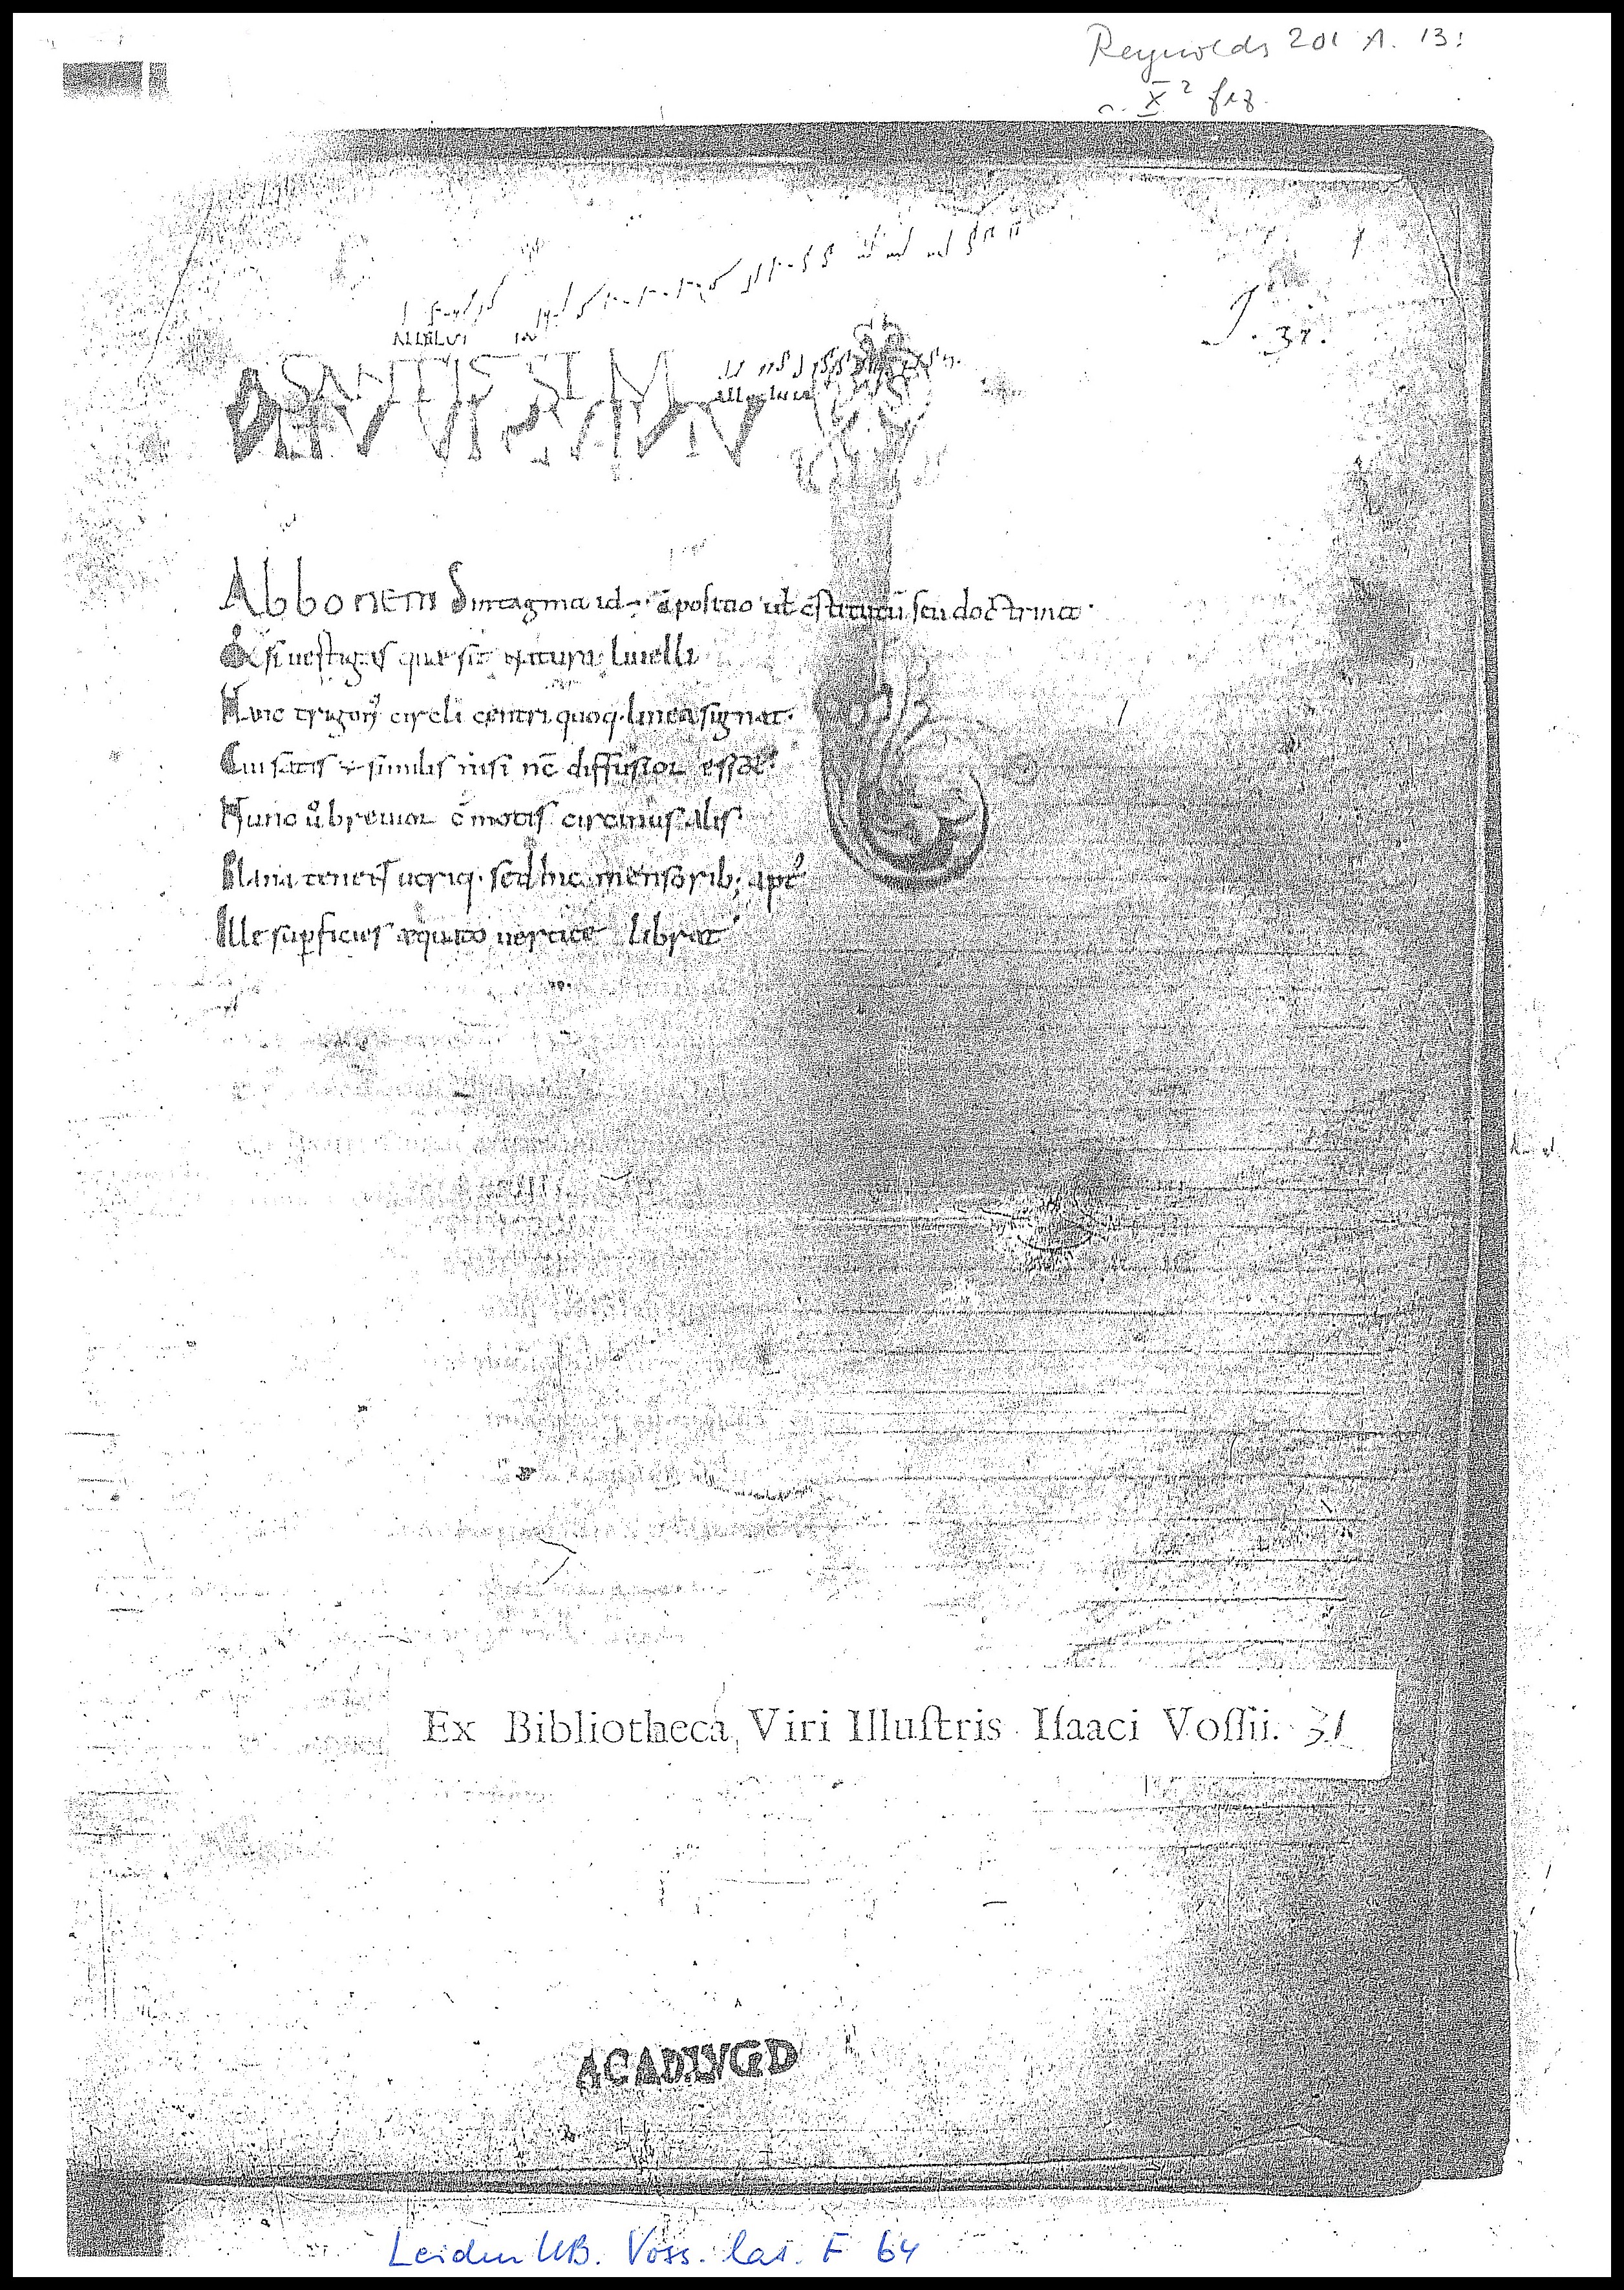 Reynolds 201 A. 13:
X²
J. 31.
ALLELUI
SANTISSIM
alleluia
Abbonem Sintagma id
Et si uestigas quae sit natura liuelli
Huic trigonꝰ circli centri quoq. linea signat.
Cui satis similis nisi nc̄ diffusior esset
Hunc uͦ breuior c̄ motis circinus alis
Plana tenet utriq. sed hic mensorib; aptꝰ
Ille suꝑficies aequato uertice librat
Ex Bibliotheca Viri Illuſtris Iſaaci Voſſii. 31
ACAD.LVGD
Leiden UB. Voss. lat. F 64